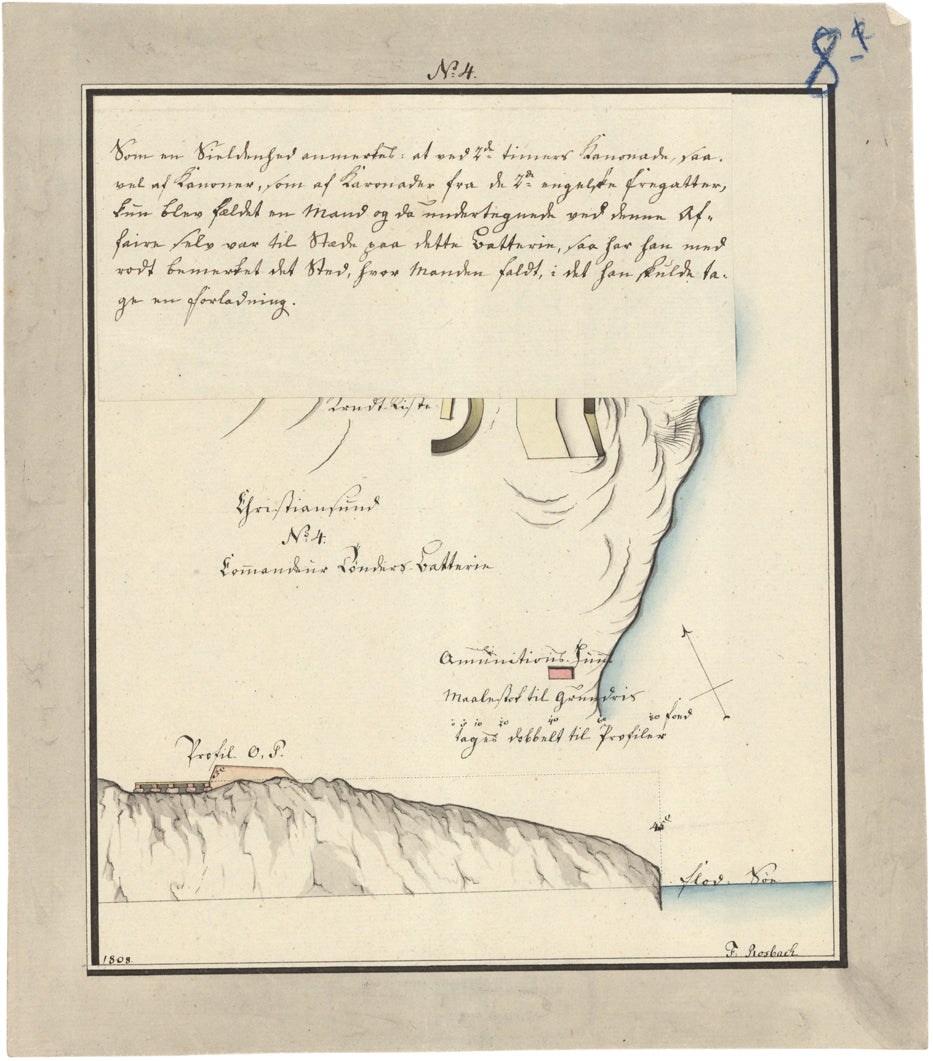 8 4
No 4.
Som en Sieldenhed anmerkes: at ved 2de timers Kanonade, saa-
vel af Kanoner, som af Karonader fra de 2de engelske Fregatter,
kun blev fældet en Mand og da undertegnede ved denne Af-
faire selv var til Stæde paa dette Batterie, saa har han med
rødt bemerket det Sted, hvor Manden faldt, i det han skulde ta-
ge en Forladning.
Krudt-Kiste
Christiansund
No 4.
Commandeur Lønders Batterie
Amunitions-Huus
Maalestok til Grundris
10 20 40 60 80 foed
tages dobbelt til Profiler
Profil O. P.
45°
Flod. Søe
1808.
F. Rosbach